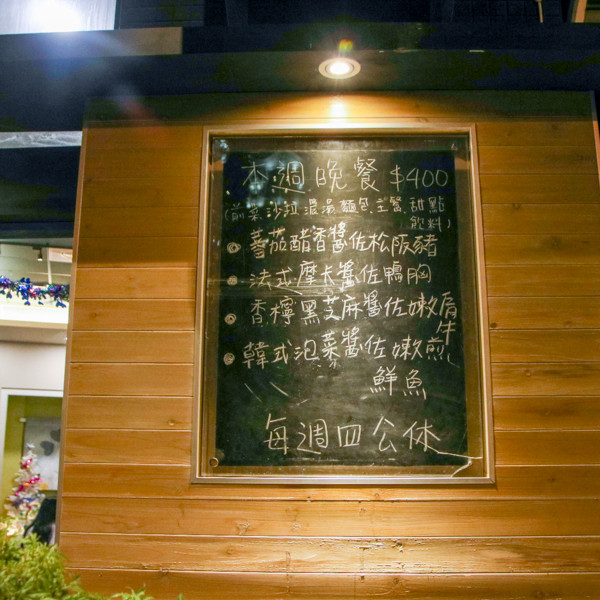 本週晚餐 $400
(前菜.沙拉.濃湯.麵包.主餐.甜點
飲料)
蕃茄醋香醬佐松阪豬
法式摩卡醬佐鴨胸
香檸黑芝麻醬佐嫩肩
牛
韓式泡菜醬佐嫩煎
鮮魚
每週四公休